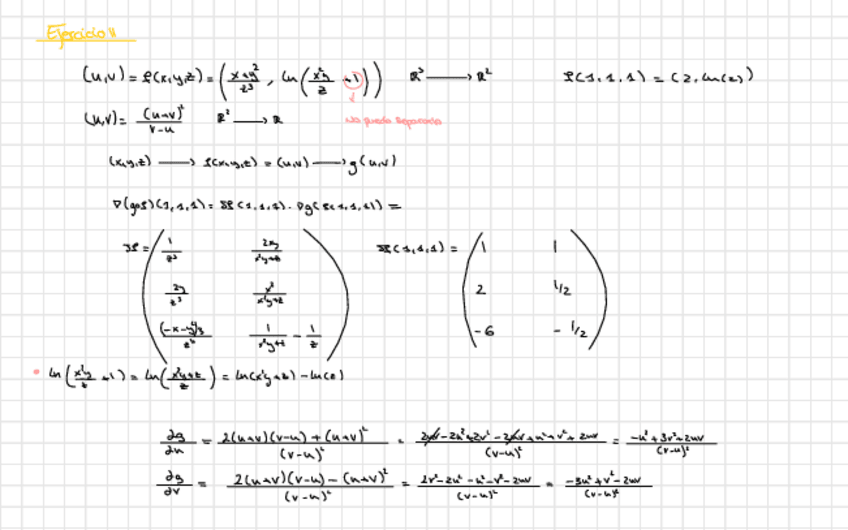 Ejercicio 11
(u,v) = f(x,y,z) = ( (x+y²)/z³ , ln( x²y/z +1 ) ) ℝ³ → ℝ² f(1,1,1) = (2, ln(2))
↓
No puedo separarla
(u,v) = (u+v)²/(v-u) ℝ² → ℝ
(x,y,z) → f(x,y,z) = (u,v) → g(u,v)
∇(g∘f)(1,1,1) = Jf(1,1,1) · ∇g(f(1,1,1)) =
Jf = ( 1/z³ 2xy/(x²y+z) Jf(1,1,1) = ( 1 1
2y/z³ x²/(x²y+z) 2 1/2
(-x-y²)3/z⁴ 1/(x²y+z) - 1/z ) -6 -1/2 )
• ln( x²y/z +1 ) = ln( (x²y+z)/z ) = ln(x²y+z) - ln(z)
∂g/∂u = (2(u+v)(v-u) + (u+v)²)/(v-u)² = (2uv - 2u² + 2v² - 2uv + u² + v² + 2uv)/(v-u)² = (-u² + 3v² + 2uv)/(v-u)²
∂g/∂v = (2(u+v)(v-u) - (u+v)²)/(v-u)² = (2v² - 2u² - u² - v² - 2uv)/(v-u)² = (-3u² + v² - 2uv)/(v-u)²